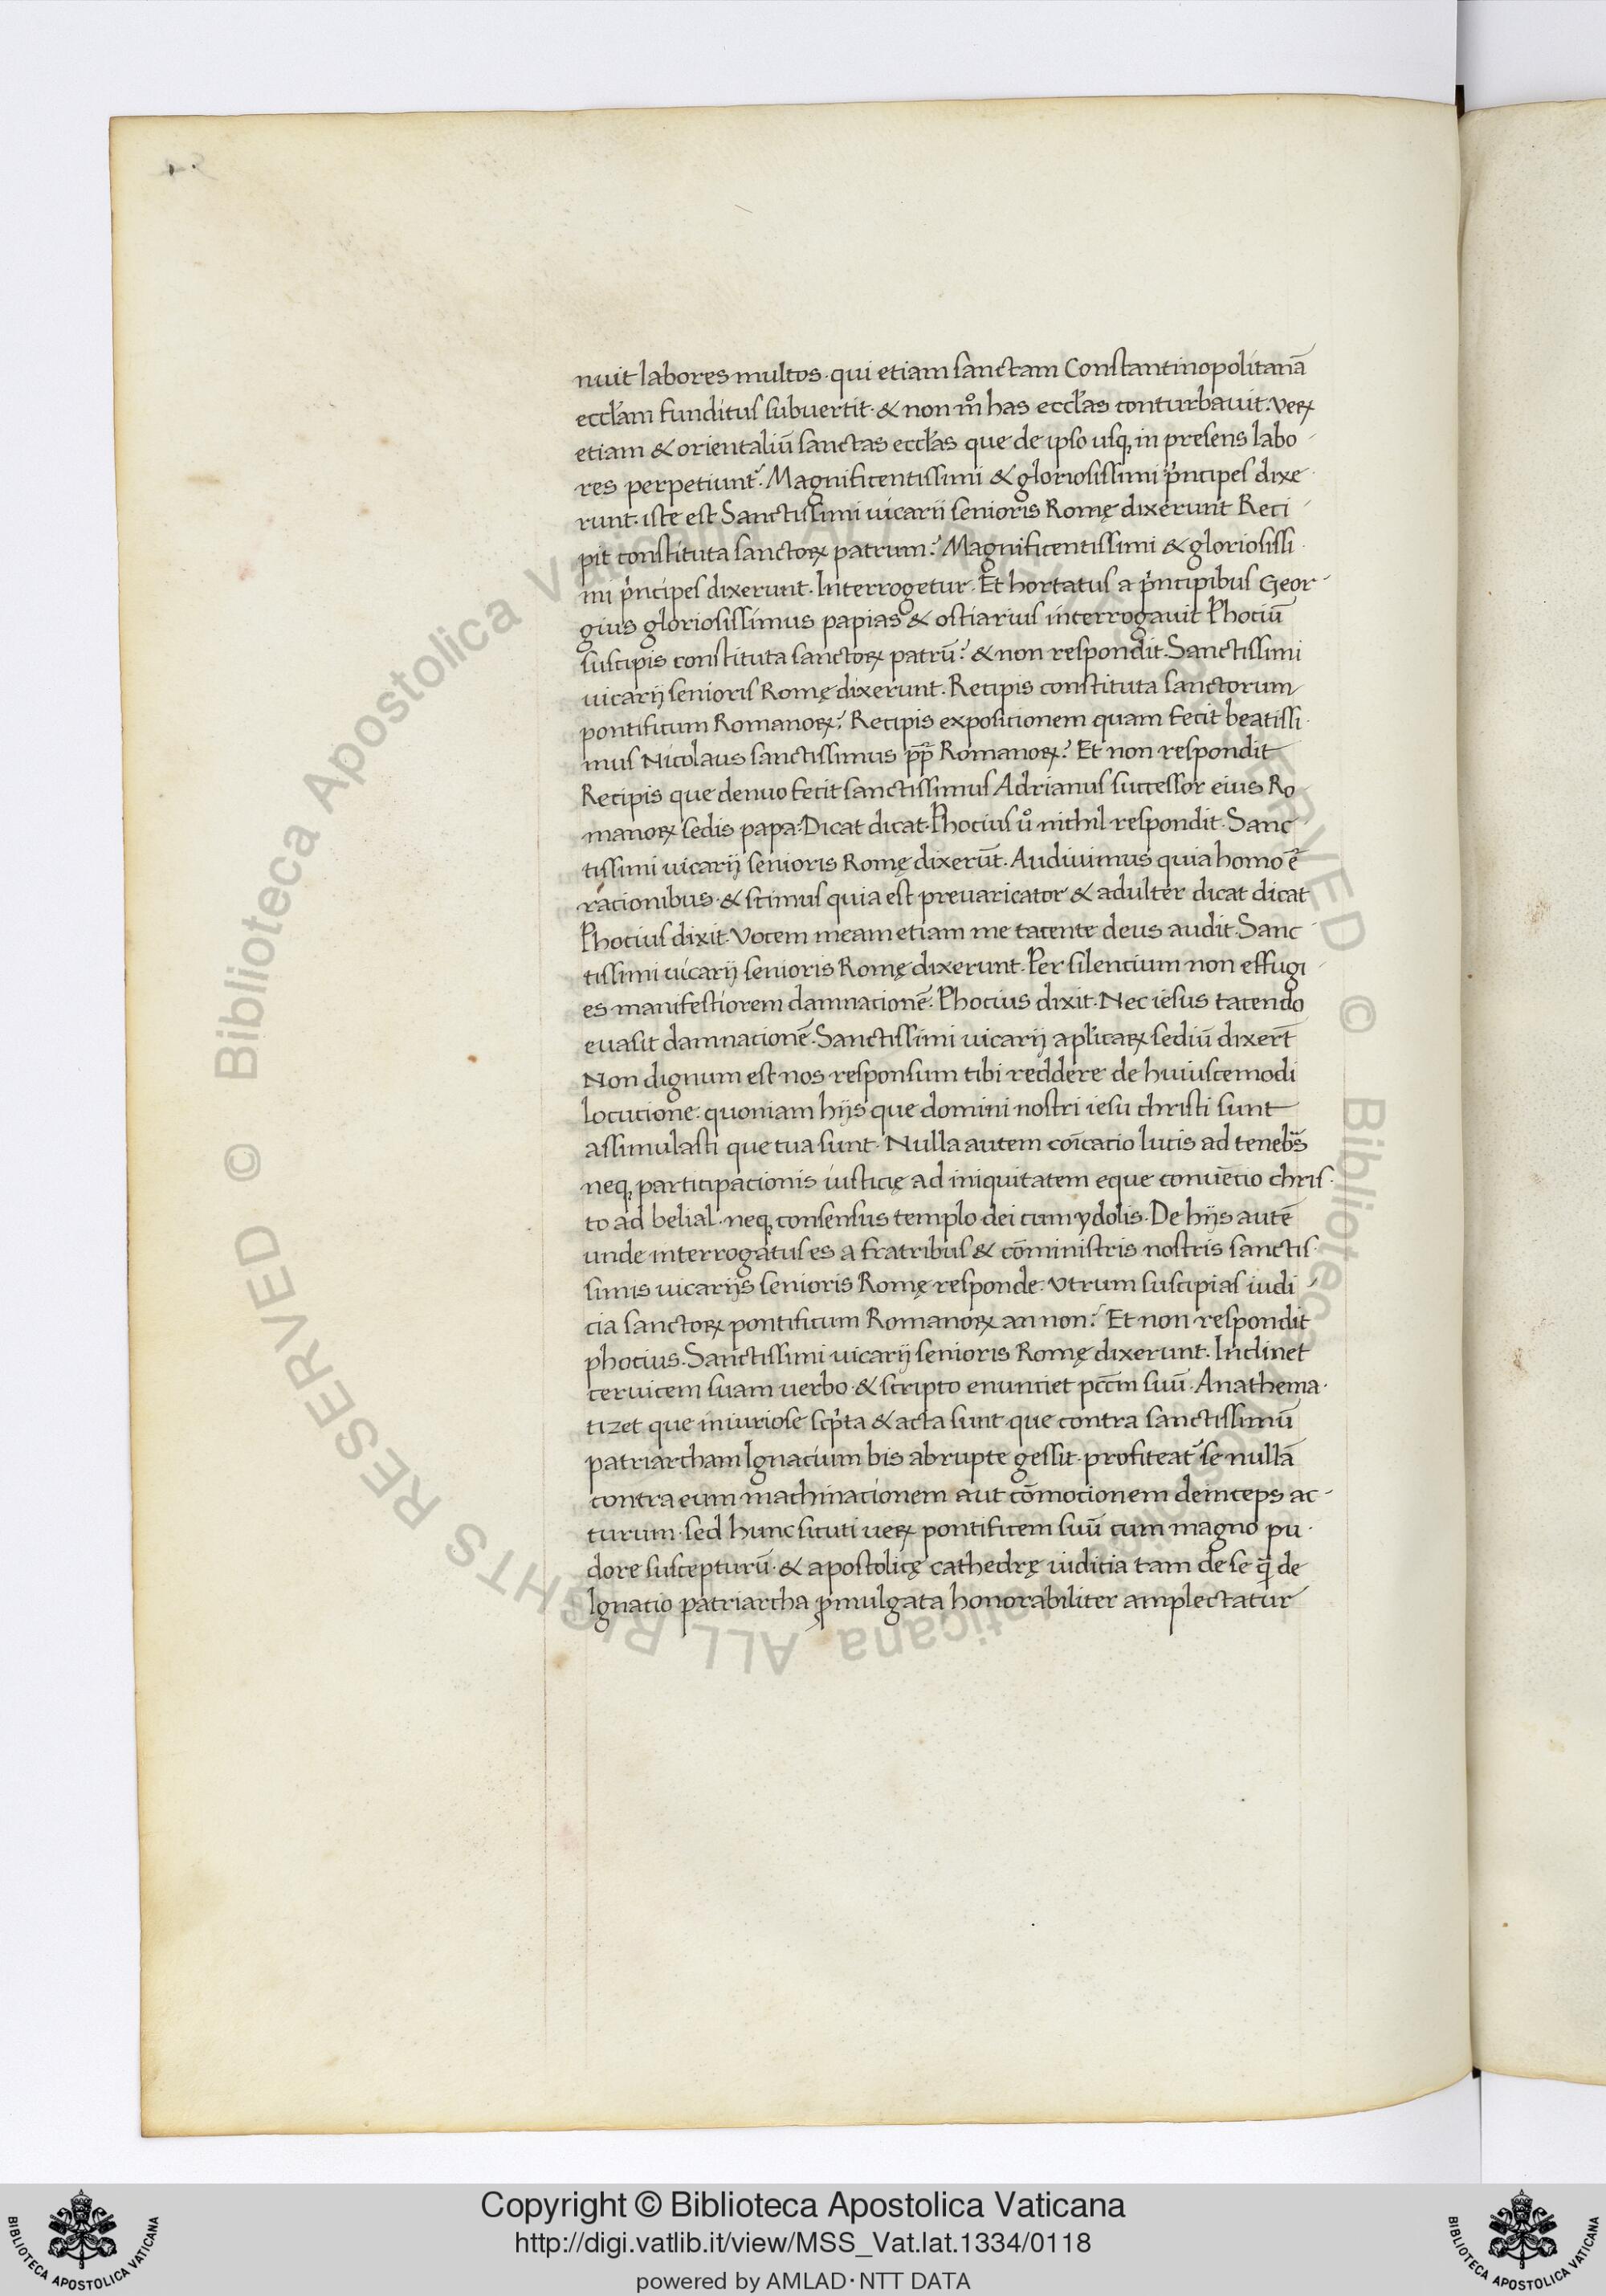 nuit labores multos· qui etiam sanctam Constantinopolitanā
eccl̄am funditus subuertit· & non mͦ has eccl̄as conturbauit. verꝝ
etiam & orientaliū sanctas eccl̄as que de ipso usqꝫ in presens labo
res perpetiunt᷑. Magnificentissimi & gloriosissimi pͥncipes dixe
runt. iste est Sanctissimi uicarii senioris Romę dixerunt Reci
pit constituta sanctoꝝ patrum? Magnificentissimi & gloriosissi
mi pͥncipes dixerunt. Interrogetur. Et hortatus a pͥncipibus Geor
gius gloriosissimus papias & ostiarius interrogauit Phociū
suscipis constituta sanctoꝝ patrū? & non respondit. Sanctissimi
uicarij senioris Romę dixerunt. Recipis constituta sanctorum
pontificum Romanoꝝ? Recipis exposicionem quam fecit beatissi
mus Nicolaus sanctissimus pp̄ Romanoꝝ? Et non respondit
Recipis que denuo fecit sanctissimus Adrianus successor eius Ro
manoꝝ sedis papa: Dicat dicat. Phocius uͦ nichil respondit. Sanc
tissimi uicarij senioris Romę dixerūt. Audiuimus quia homo ē
racionibus· & scimus quia est preuaricator & adulter dicat dicat
Phocius dixit. Vocem meam etiam me tacente deus audit. Sanc
tissimi uicarij senioris Romę dixerunt. Per silencium non effugi
es manifestiorem damnacionē. Phocius dixit. Nec iesus tacendo
euasit damnacionē. Sanctissimi uicarij apl̄icaꝝ sediū dixert̄
Non dignum est nos responsum tibi reddere de huiuscemodi
locucione· quoniam hijs que domini nostri iesu christi sunt
assimulasti que tua sunt. Nulla autem coīcatio lucis ad tenebͣs
neqꝫ participacionis iusticię ad iniquitatem eque conuētio chris
to ad belial· neqꝫ consensus templo dei cum ydolis. De hijs autē
unde interrogatus es a fratribus & cōministris nostris sanctis
simis uicarijs senioris Romę responde. vtrum suscipias iudi
cia sanctoꝝ pontificum Romanoꝝ an non? Et non respondit
phocius. Sanctissimi uicarij senioris Romę dixerunt. Inclinet
ceruicem suam uerbo· & scripto enunciet pccm̄ suū. Anathema
tizet que iniuriose scpͥta & acta sunt que contra sanctissimū
patriarcham Ignacium bis abrupte gessit. profiteat᷑ se nullā
contra eum machinacionem aut cōmocionem deinceps ac
turum· sed hunc sicuti ueꝝ pontificem suū cum magno pu
dore suscepturū. & apostolicę cathedrę iudicia tam de se q̄ de
Ignacio patriarcha ꝓmulgata honorabiliter amplectatur
Copyright © Biblioteca Apostolica Vaticana
http://digi.vatlib.it/view/MSS_Vat.lat.1334/0118
powered by AMLAD·NTT DATA
© Biblioteca Apostolica Vaticana ALL RIGHTS RESERVED
BIBLIOTECA APOSTOLICA VATICANA
BIBLIOTECA APOSTOLICA VATICANA